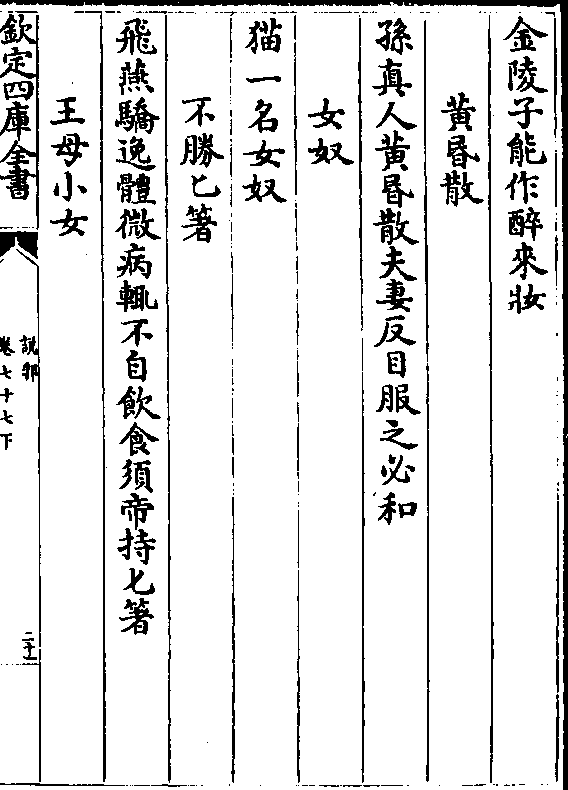 金陵子能作醉來妝
黃昬散
孫真人黃昬散夫妻反目服之必和
女奴
猫一名女奴
不勝匕箸
飛燕驕逸體微病輒不自飲食須帝持匕箸
王母小女
欽定四庫全書
說郛
卷七十七下